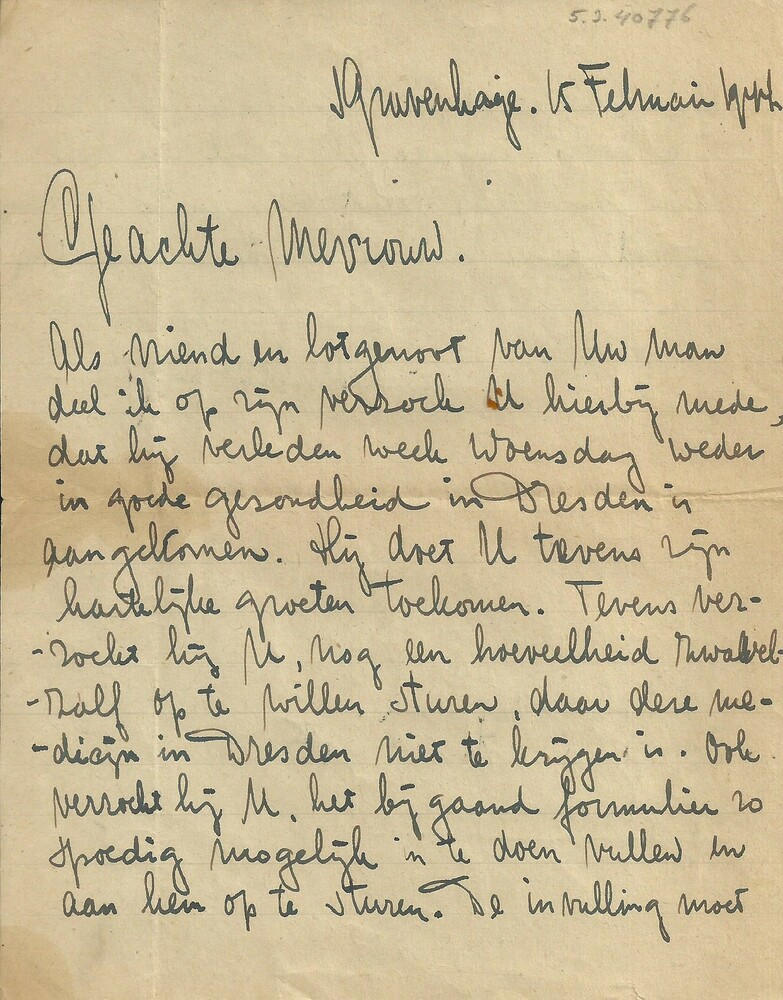 5.2.40776
'sGravenhage. 15 Februari 1944
Geachte Mevrouw.
Als vriend en lotgenoot van Uw man
deel ik op zijn verzoek U hierbij mede,
dat hij verleden week Woensdag weder
in goede gezondheid in Dresden is
aangekomen. Hij doet U tevens zijn
hartelijke groeten toekomen. Tevens ver-
-zoekt hij U, nog een hoeveelheid zwavel-
-zalf op te willen sturen, daar deze me-
-dicijn in Dresden niet te krijgen is. Ook
verzoekt hij U, het bijgaand formulier zo
spoedig mogelijk in te doen vullen en
aan hem op te sturen. De invulling moet